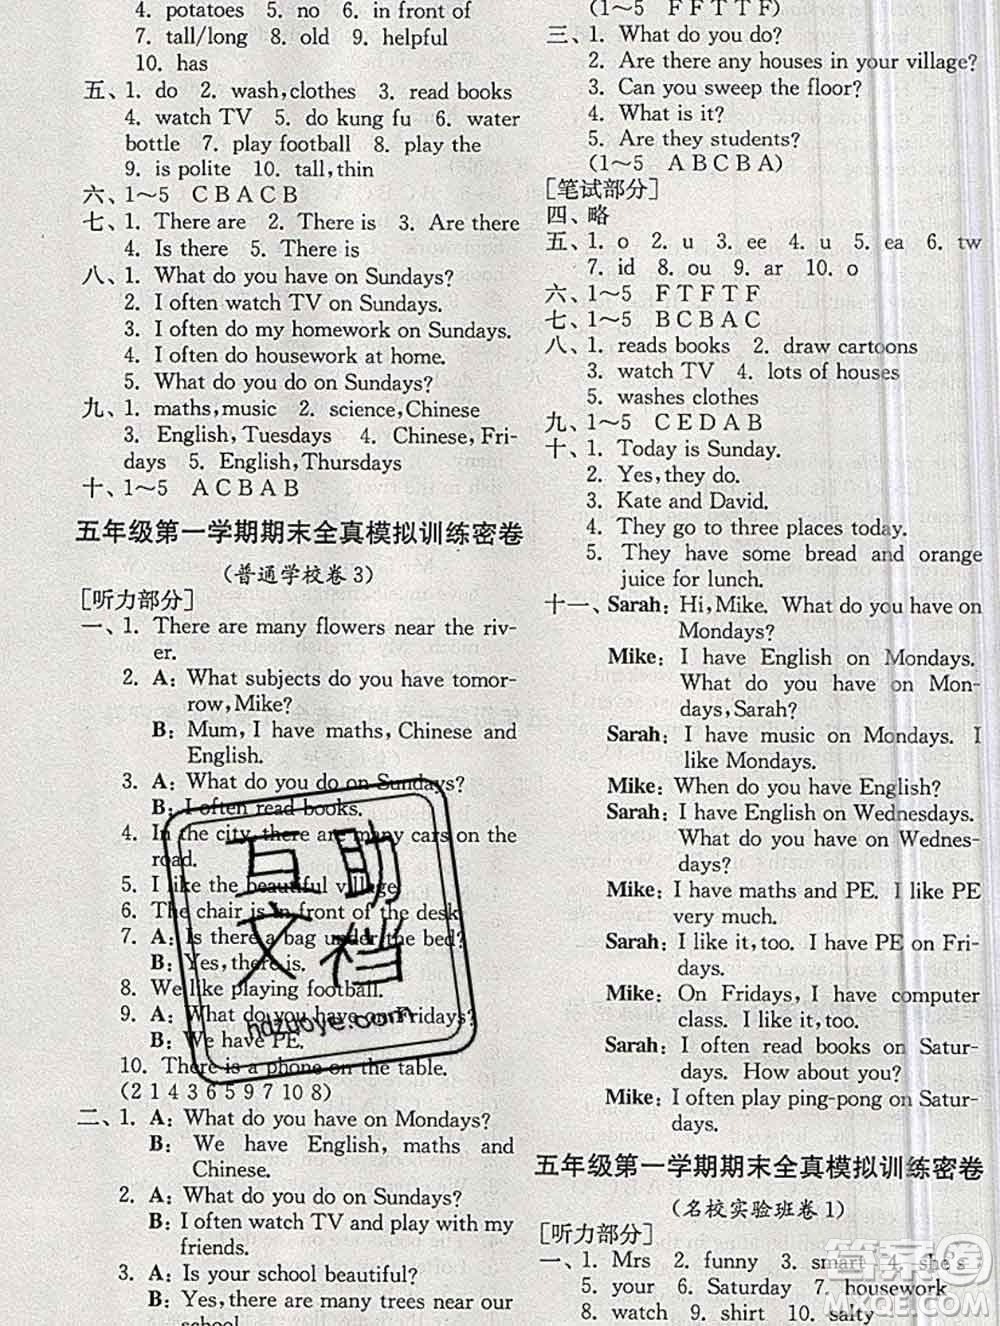 4. potatoes 5. no 6. in front of
7. tall/long 8. old 9. helpful
10. has
五、1. do 2. wash,clothes 3. read books
4. watch TV 5. do kung fu 6. water
bottle 7. play football 8. play the
9. is polite 10. tall,thin
六、1～5 C B A C B
七、1. There are 2. There is 3. Are there
4. Is there 5. There is
八、1. What do you have on Sundays?
2. I often watch TV on Sundays.
3. I often do my homework on Sundays.
4. I often do housework at home.
5. What do you do on Sundays?
九、1. maths,music 2. science,Chinese
3. English,Tuesdays 4. Chinese,Fri-
days 5. English,Thursdays
十、1～5 A C B A B
五年级第一学期期末全真模拟训练密卷
(普通学校卷3)
[听力部分]
一、1. There are many flowers near the riv-
er.
2. A: What subjects do you have tomor-
row,Mike?
B: Mum, I have maths, Chinese and
English.
3. A: What do you do on Sundays?
B: I often read books.
4. In the city, there are many cars on the
road.
5. I like the beautiful village.
6. The chair is in front of the desk.
7. A: Is there a bag under the bed?
B: Yes,there is.
8. We like playing football.
9. A: What do you have on Fridays?
B: We have PE.
10. There is a phone on the table.
(2 1 4 3 6 5 9 7 10 8)
二、1. A: What do you have on Mondays?
B: We have English, maths and
Chinese.
2. A: What do you do on Sundays?
B: I often watch TV and play with my
friends.
3. A: Is your school beautiful?
B: Yes, there are many trees near our
school.
(1～5 F F T T F)
三、1. What do you do?
2. Are there any houses in your village?
3. Can you sweep the floor?
4. What is it?
5. Are they students?
(1～5 A B C B A)
[笔试部分]
四、略
五、1. o 2. u 3. ee 4. u 5. ea 6. tw
7. id 8. ou 9. ar 10. o
六、1～5 F T F T F
七、1～5 B C B A C
八、1. reads books 2. draw cartoons
3. watch TV 4. lots of houses
5. washes clothes
九、1～5 C E D A B
十、1. Today is Sunday.
2. Yes,they do.
3. Kate and David.
4. They go to three places today.
5. They have some bread and orange
juice for lunch.
十一、Sarah: Hi,Mike. What do you have on
Mondays?
Mike: I have English on Mondays.
What do you have on Mon-
days,Sarah?
Sarah: I have music on Mondays. I
like Mondays.
Mike: When do you have English?
Sarah: I have English on Wednesdays.
What do you have on Wednes-
days?
Mike: I have maths and PE. I like PE
very much.
Sarah: I like it,too. I have PE on Fri-
days.
Mike: On Fridays, I have computer
class. I like it,too.
Sarah: I often read books on Satur-
days. How about you?
Mike: I often play ping-pong on Satur-
days.
五年级第一学期期末全真模拟训练密卷
(名校实验班卷1)
[听力部分]
一、1. Mrs 2. funny 3. smart 4. she's
5. your 6. Saturday 7. housework
8. watch 9. shirt 10. salty
互助
文档
hdzuoye.com
答案圈
MXQE.COM